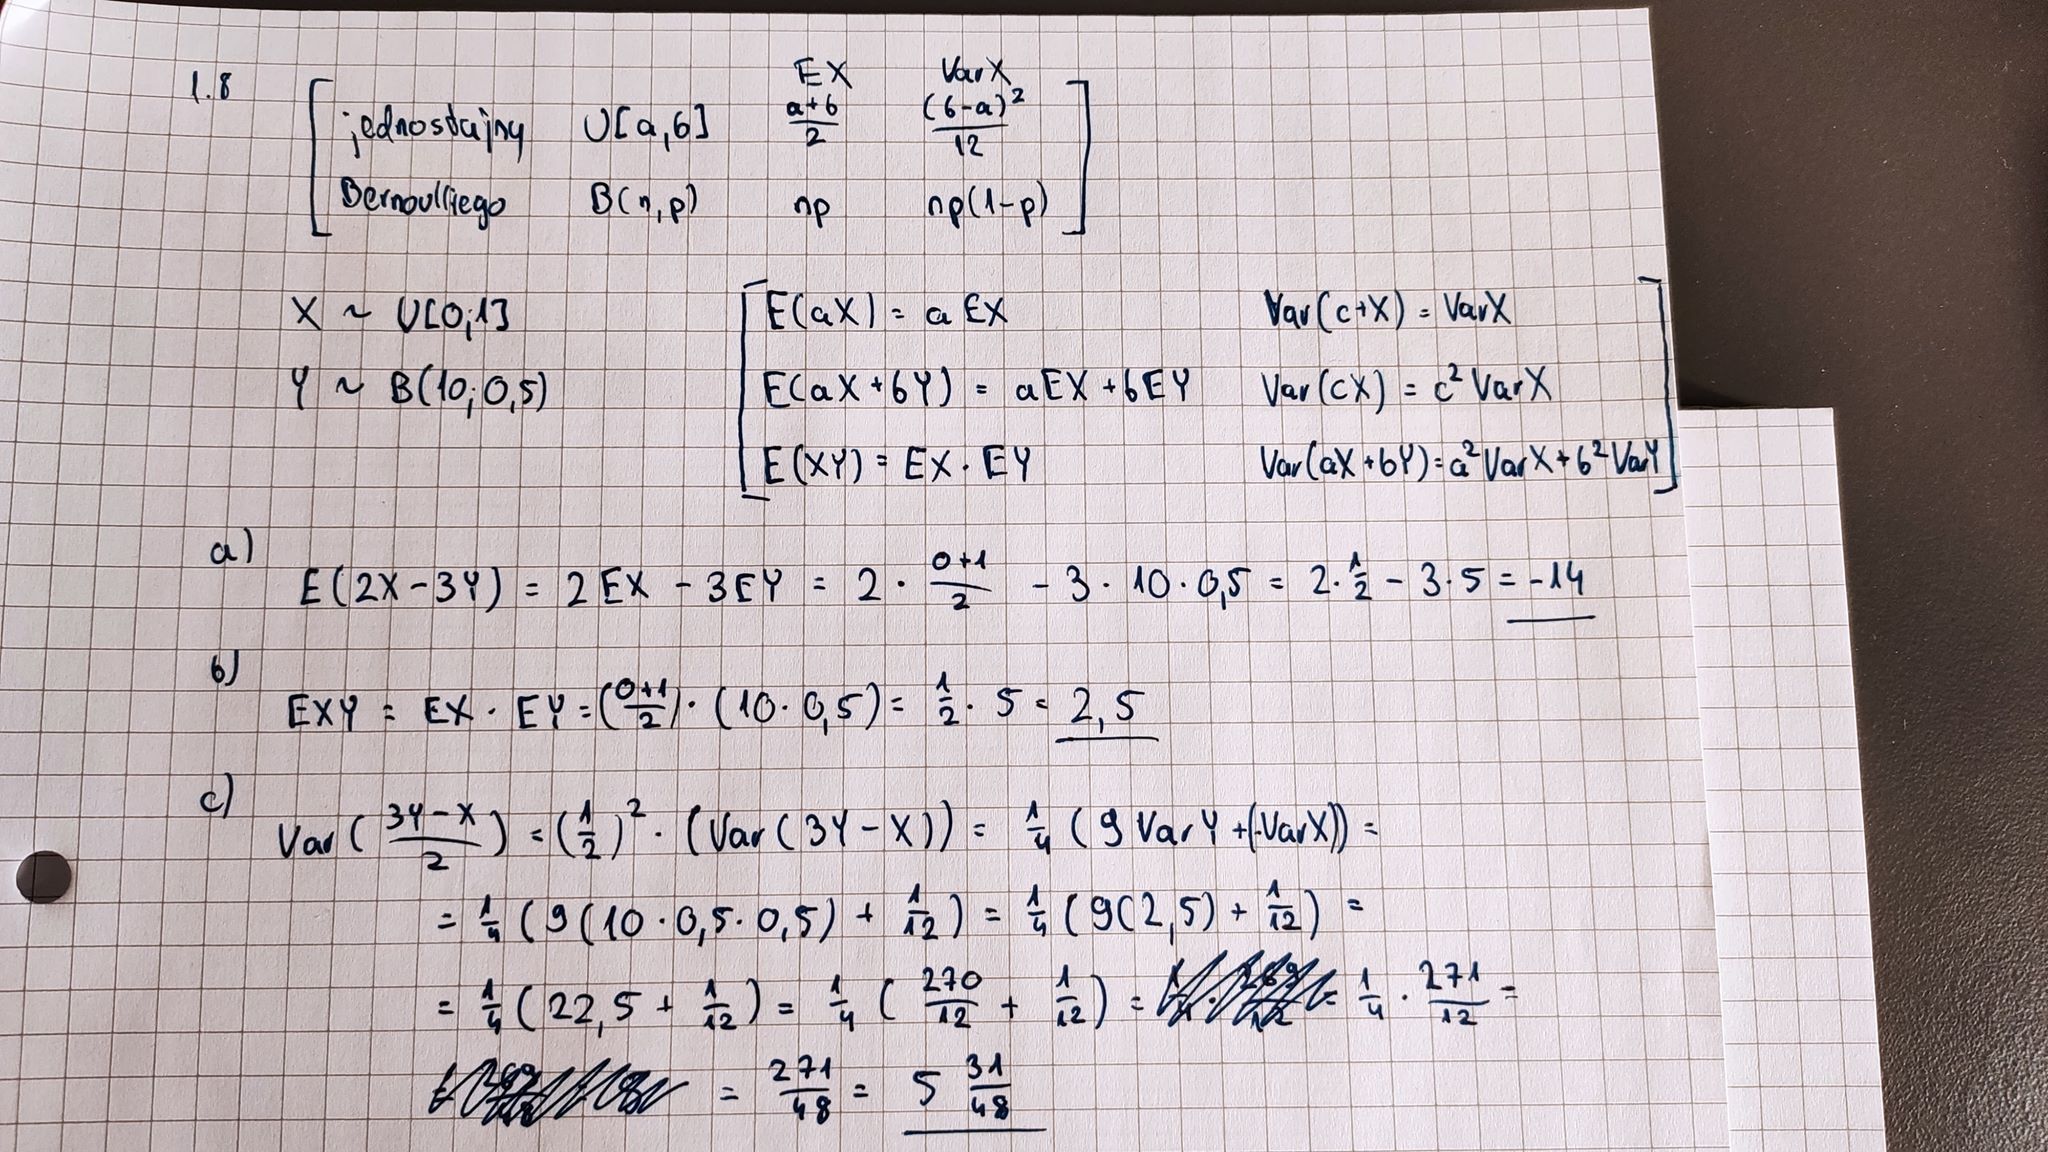 1.8
EX VarX
jednostajny U[a,b] (a+b)/2 (b-a)²/12
Bernoulliego B(n,p) np np(1-p)
X ~ U[0;1] E(aX) = a EX Var(c+X) = VarX
Y ~ B(10; 0,5) E(aX+bY) = aEX + bEY Var(cX) = c² VarX
E(XY) = EX · EY Var(aX+bY) = a² VarX + b² VarY
a)
E(2X-3Y) = 2EX - 3EY = 2 · (0+1)/2 - 3 · 10 · 0,5 = 2 · 1/2 - 3 · 5 = -14
b)
EXY = EX · EY = ((0+1)/2) · (10 · 0,5) = 1/2 · 5 = 2,5
c)
Var((3Y-X)/2) = (1/2)² · (Var(3Y-X)) = 1/4 (9 VarY + (-VarX)) =
= 1/4 (9(10 · 0,5 · 0,5) + 1/12) = 1/4 (9(2,5) + 1/12) =
= 1/4 (22,5 + 1/12) = 1/4 (270/12 + 1/12) = = 1/4 · 271/12 =
= 271/48 = 5 31/48